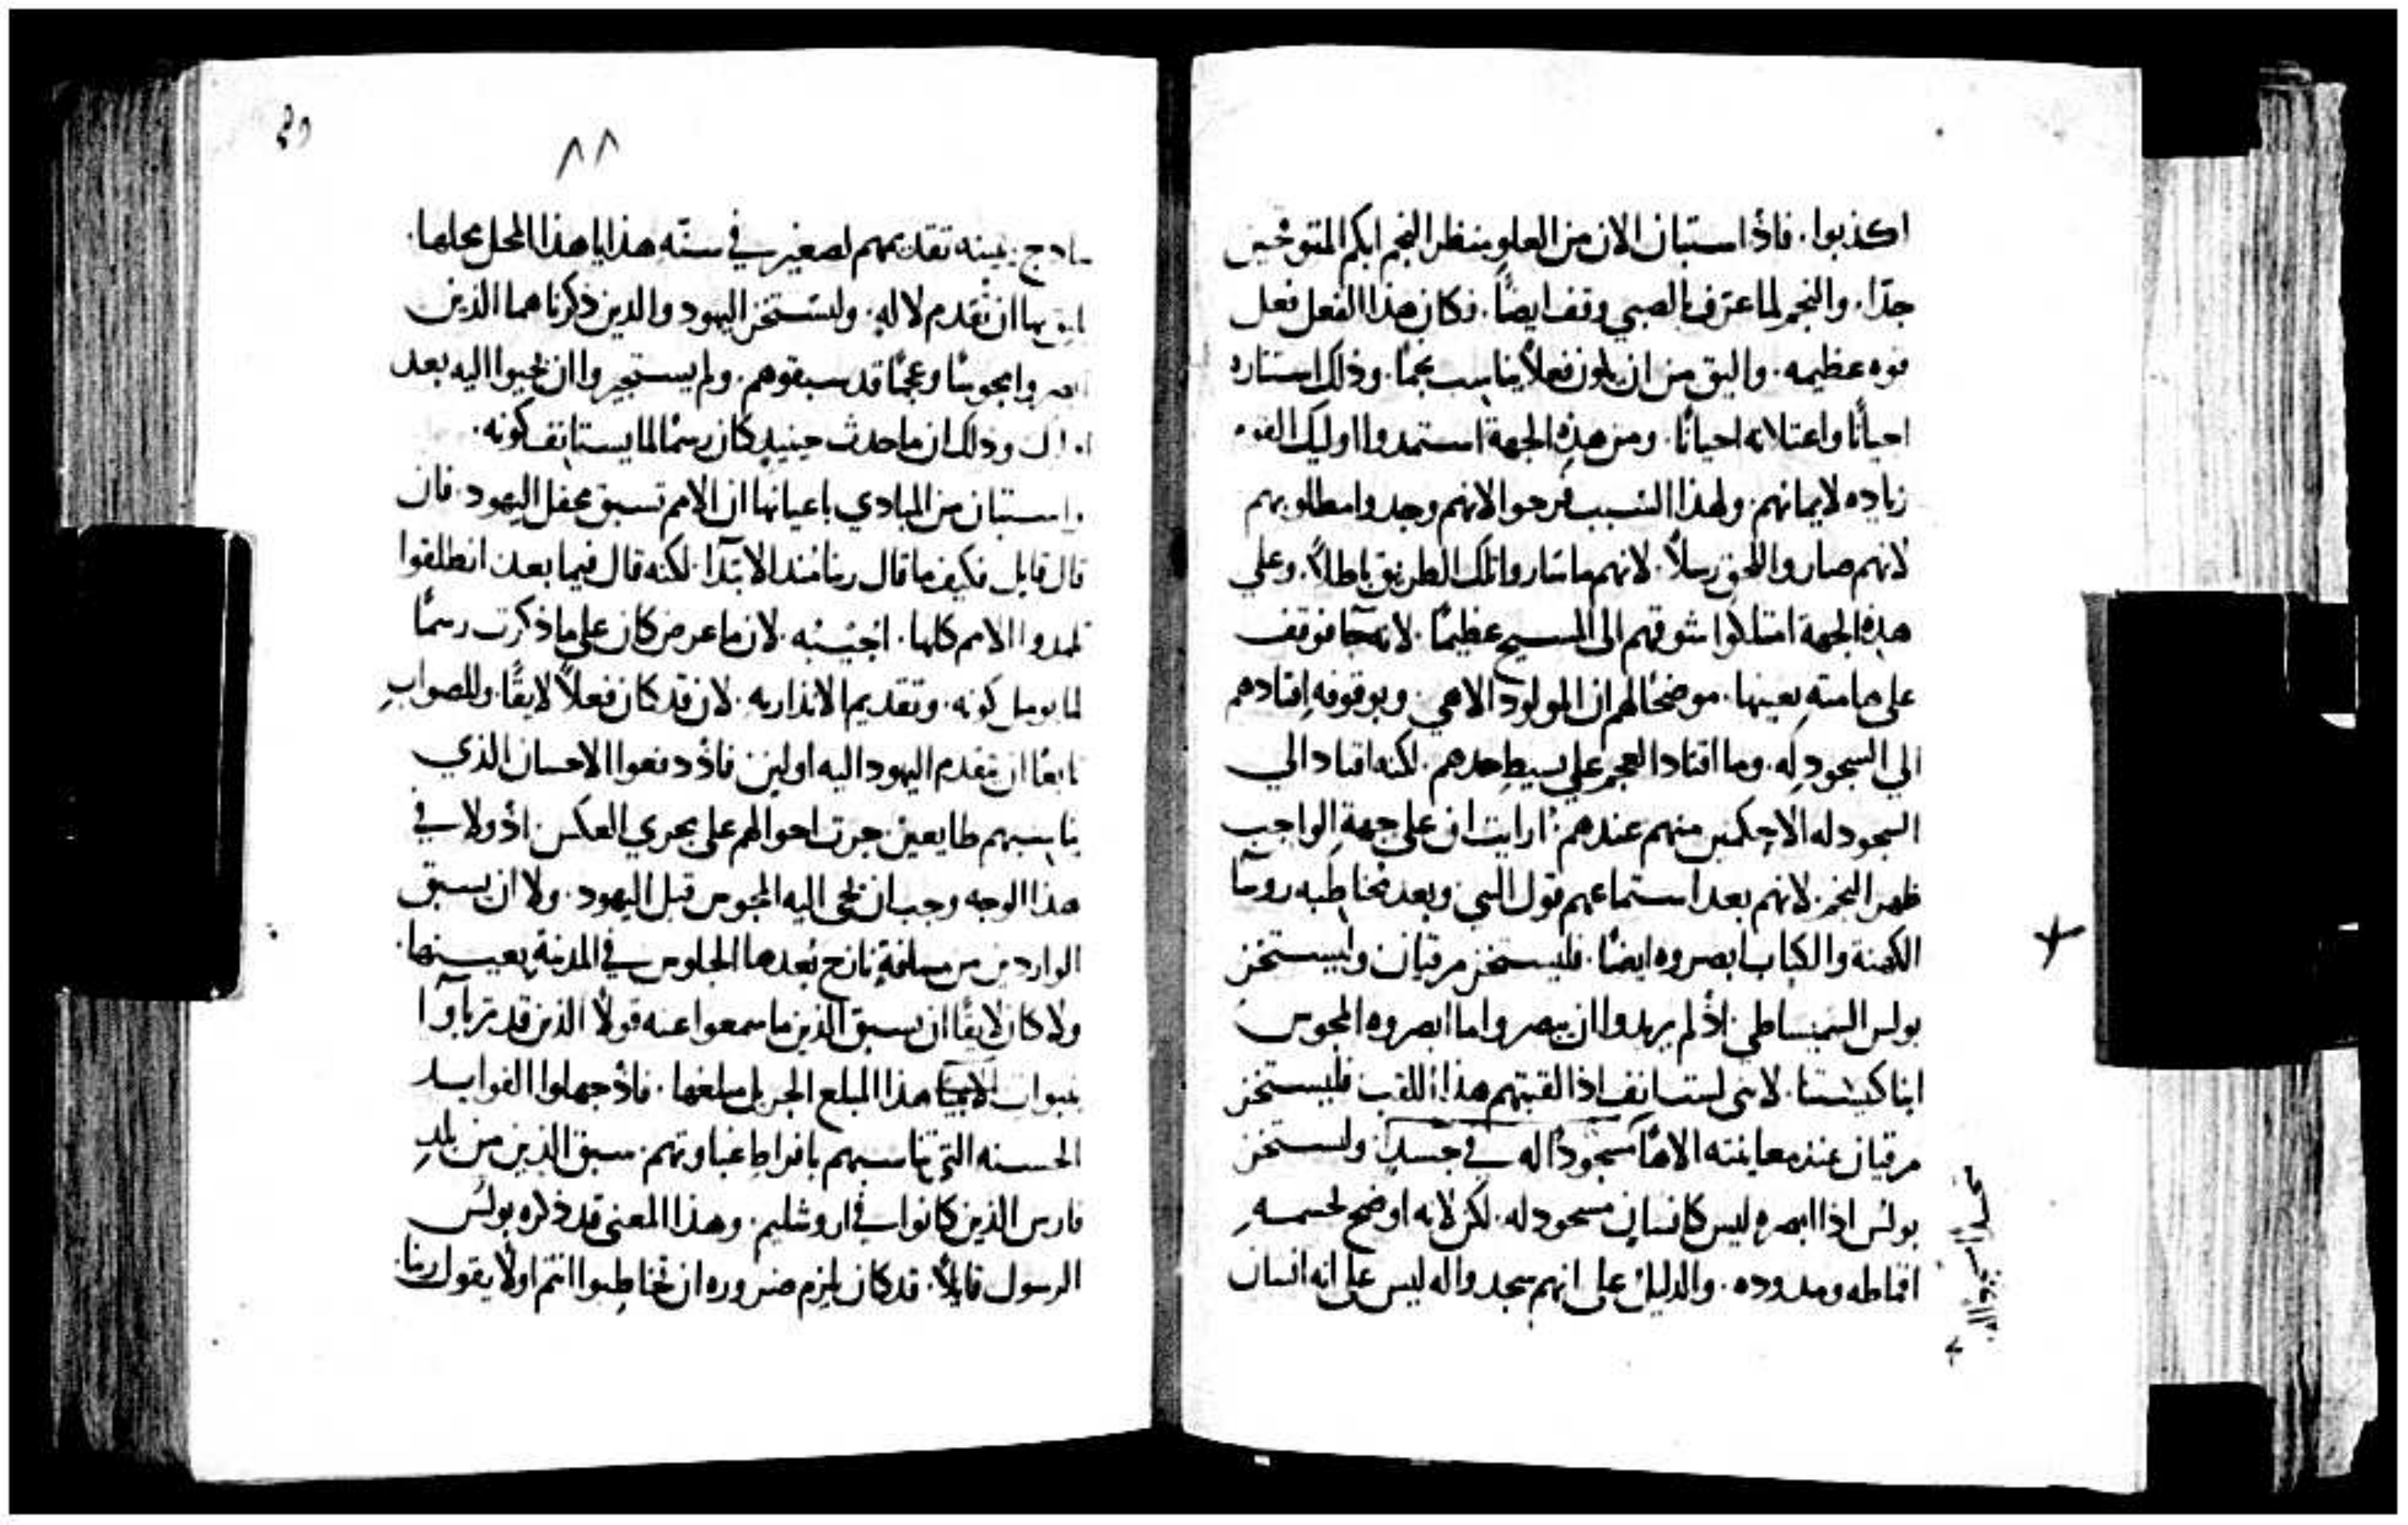 اكذبوا. فاذ استبان الان من العلو بنظر النجم ابكم المتوقحين
جدّا. والنجم لما عترف بالصبي وقف ايضًا. فكان هذا الفعل فعل
قوه عظيمه. واليق من ان يكون فعلاً يناسب نجمًا. وذلك استتاره
احيانًا واعتلانه احيانًا. ومن هذه الجهة استمدوا اوليك القوم
زياده لايمانهم. ولهذا السبب فرحوا لانهم وجدوا مطلوبهم
لانهم صاروا للحق رسلاً. لانهم ما ساروا تلك الطريق باطلاً. وعلي
هذه الجهة امتلكوا شوقهم الى المسيح عظيمًا. لانه جا فوقف
على هامته بعينها. موضحًا لهم ان المولود الاهي. وبوقوفه اقتادهم
الي السجود له. وما اقتاد العجم علي بسيط حدهم. لكنه اقتاد الي
السجود له الاحكمين منهم عندهم. ارايت ان على جهة الواجب
ظهر النجم. لانهم بعد استماعهم قول النبي وبعد مخاطبه روسآ
الكهنة والكتاب ابصروه ايضًا. فليستخز مرقيان وليستخز
بولس السميساطي. اذ لم يريدوا ان يبصروا ما ابصروه المجوس
ابنا كنيستنا. لانني لست انف اذا لقبتهم هذا اللقب فليستخز
مرقيان عند معاينته الاهًا مسجودًا له في جسدٍ. وليستخز
بولس اذا ابصره ليس كانسان مسجود له. لكن لانه اوضح لجسمه
اقماطه ومدوده. والدليل على انهم سجدوا له ليس على انه انسان
٨٨
ساذج. يبينه تقديمهم لصغير في سنّه هذايا هذا المحل محلها.
لايق بها ان تقدم لاله. وليستخز اليهود والدين ذكرناهما الذين
ابصروا مجوسًا وعجمًا قد سبقوهم. ولم يستجيروا ان يجيوا اليه بعد
اوليك وذلك ان ما حدث حينيدٍ كان رسمًا لما يستانف كونه.
واستبان من المبادي باعيانها ان الامم تسبق محفل اليهود. فان
قال قايل فكيف ما قال ربنا منذ الابتدآ. لكنه قال فيما بعد انطلقوا
تلمدوا الامم كلها. اجيبه. لان ما عرض كان على ما ذكرت رسمًا
لما يومل كونه. وتقديم الانذار به. لان قد كان فعلاً لايقًا. وللصواب
تابعًا ان يتقدم اليهود اليه اولين. فاذ دفعوا الاحسان الذي
يناسبهم طايعين جرت احوالهم على مجري العكس. اذ ولا في
هذا الوجه وجب ان يجى اليه المجوس قبل اليهود. ولا ان يسبق
الواردين من مسافةٍ نازح بُعدها الجلوس في المدينة بعينها.
ولا كان لايقًا ان يسبق الذين ما سمعوا عنه قولاً الذين قد تربوا
بنبوات الانبيا هذا المبلع الجزيل مبلغها. فاذ جهلوا الفوايد
الحسنه التي تناسبهم بافراط غباوتهم. سبق الذين من بلد
فارس الذين كانوا في اروشليم. وهذا المعني قد ذكره بولس
الرسول قايلاً. قد كان يلزم ضروره ان تخاطبوا انتم اولاً بقول ربنا.